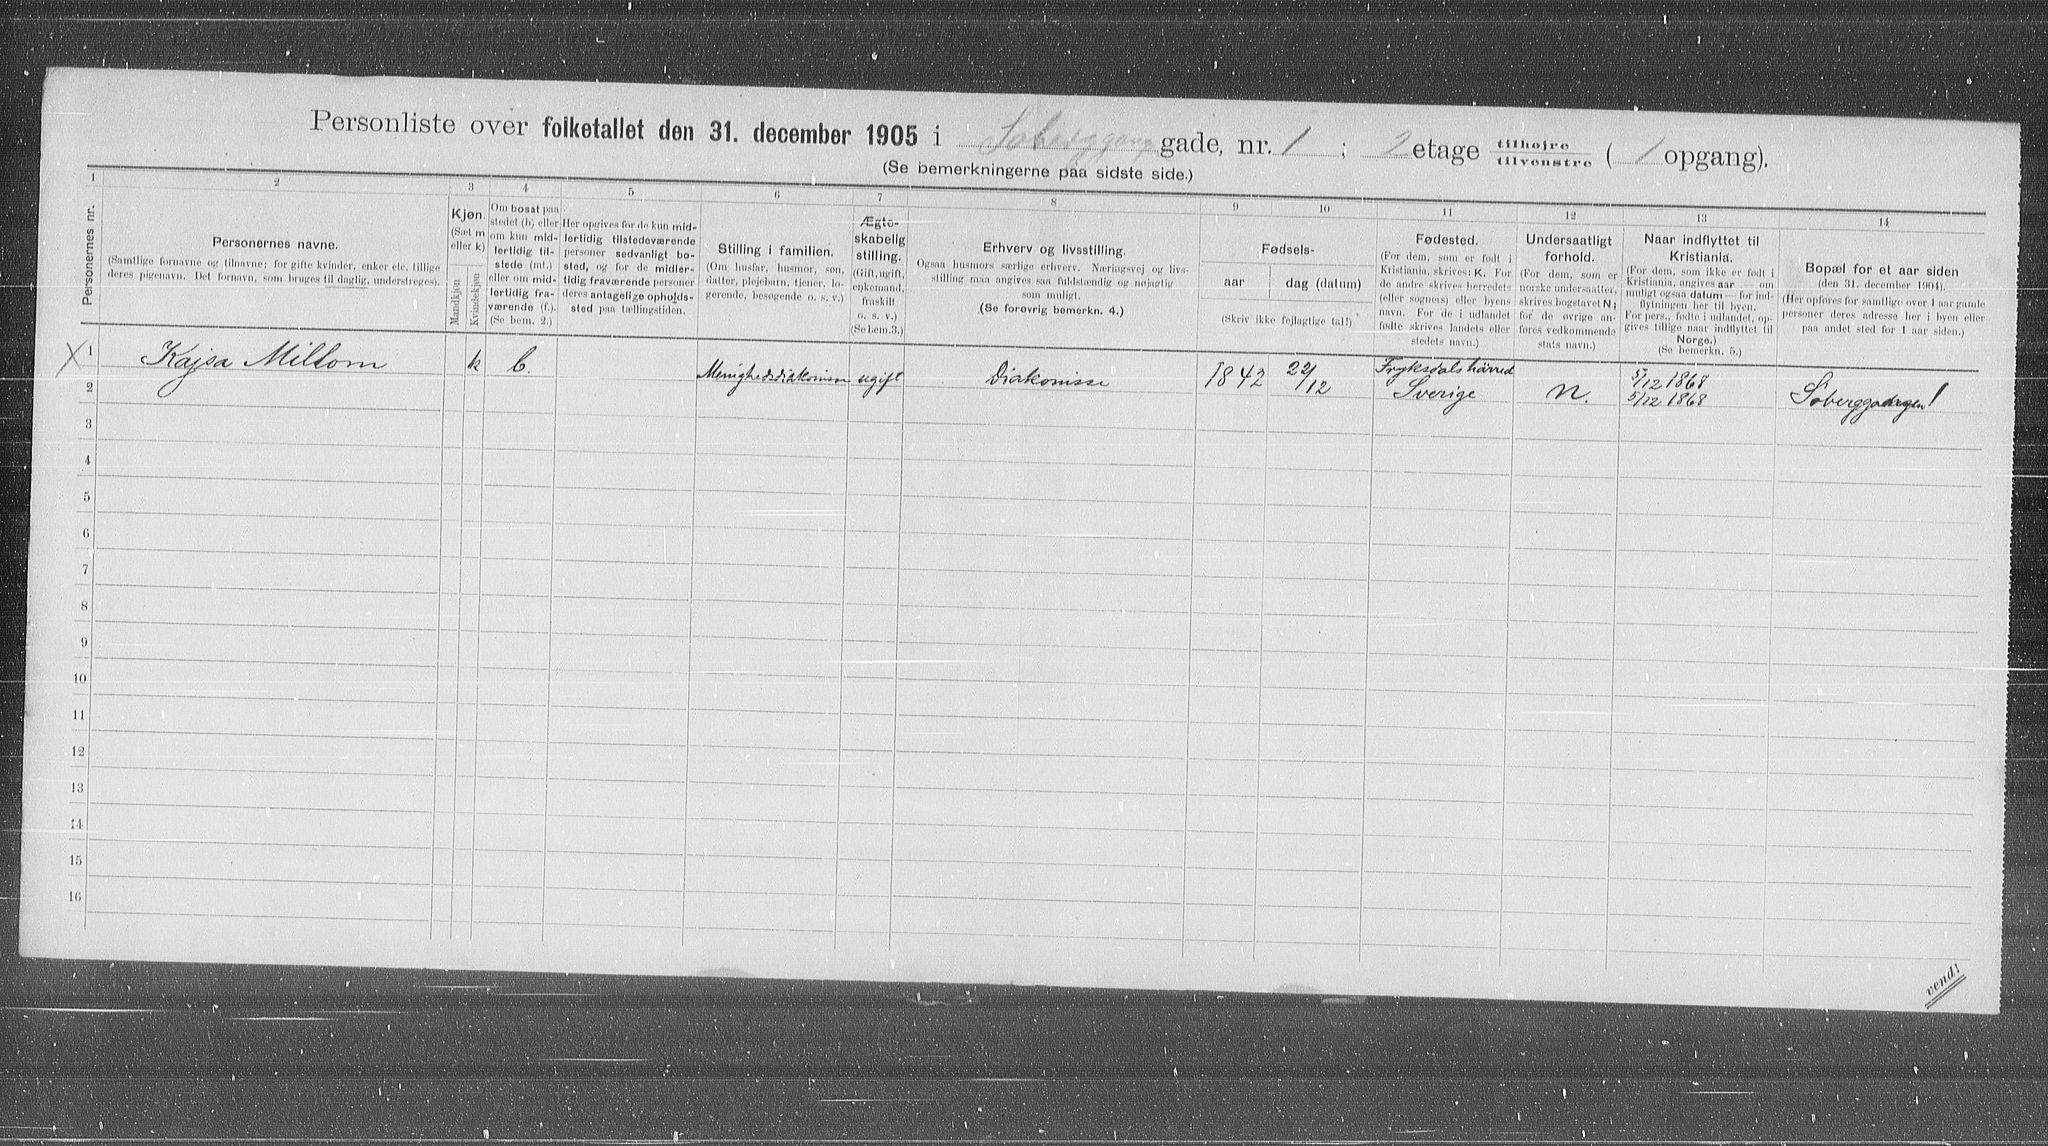 Personliste over folketallet den 31. december 1905 i Soberggang gade, nr. 1 ; 2 etage tilhøjre tilvenstre ( 1 opgang).
(Se bemerkningerne paa sidste side.)
1 2 3 4 5 6 7 8 9 10 11 12 13 14
Personernes nr.
Personernes navne.
(Samtlige fornavne og tilnavne; for gifte kvinder, enker etc. tillige
deres pigenavn. Det fornavn, som bruges til daglig, understreges).
Kjøn.
(Sæt m
eller k)
Mandkjøn
Kvindekjøn
Om bosat paa
stedet (b) eller
om kun mid-
lertidig til-
stede (mt.)
eller om mid-
lertidig fra-
værende (f.).
(Se bem. 2.)
Her opgives for de kun mid-
lertidig tilstedeværende
personer sedvanlig bo-
sted, og for de midler-
tidig fraværende personer
deres antagelige opholds-
sted paa tællingstiden.
Stilling i familien.
(Om husfar, husmor, søn,
datter, plejebarn, tjener, lo-
gerende, besøgende o. s. v.)
Ægte-
skabelig
stilling.
(Gift, ugift,
enkemand,
fraskilt
o. s. v.)
(Se bem.3.)
Erhverv og livsstilling.
Ogsaa husmors særlige erhverv. Næringsvej og livs-
stilling maa angives saa fuldstændig og nøjagtig
som muligt.
(Se forøvrig bemerkn. 4.)
Fødsels-
aar
dag (datum)
(Skriv ikke fejlagtige tal!)
Fødested.
(For dem, som er født i
Kristiania, skrives: K. For
de andre skrives herredets
(eller sognets) eller byens
navn. For de i udlandet
fødte skrives landets eller
stedets navn.)
Undersaatligt
forhold.
(For dem, som er
norske undersaatter,
skrives bogstavet N;
for de øvrige an-
føres vedkommende
stats navn.)
Naar indflyttet til
Kristiania.
(For dem, som ikke er født i
Kristiania, angives aar — om
muligt ogsaa datum — for ind-
flytningen her til byen.
For pers., fødte i udlandet, op-
gives tillige naar indflyttet til
Norge.)
(Se bemerkn. 5.)
Bopæl for et aar siden
(den 31. december 1904).
(Her opføres for samtlige over 1 aar gamle
personer deres adresse her i byen eller
paa andet sted for 1 aar siden.)
X 1 Kajsa Millom k b. Menighedsdiakonisse ugift Diakonisse 1842 22/12 Fryksdals härred Sverige N. 5/12 1868 5/12 1868
2
3
4
5
6
7
8
9
10
11
12
13
14
15
16
vend!